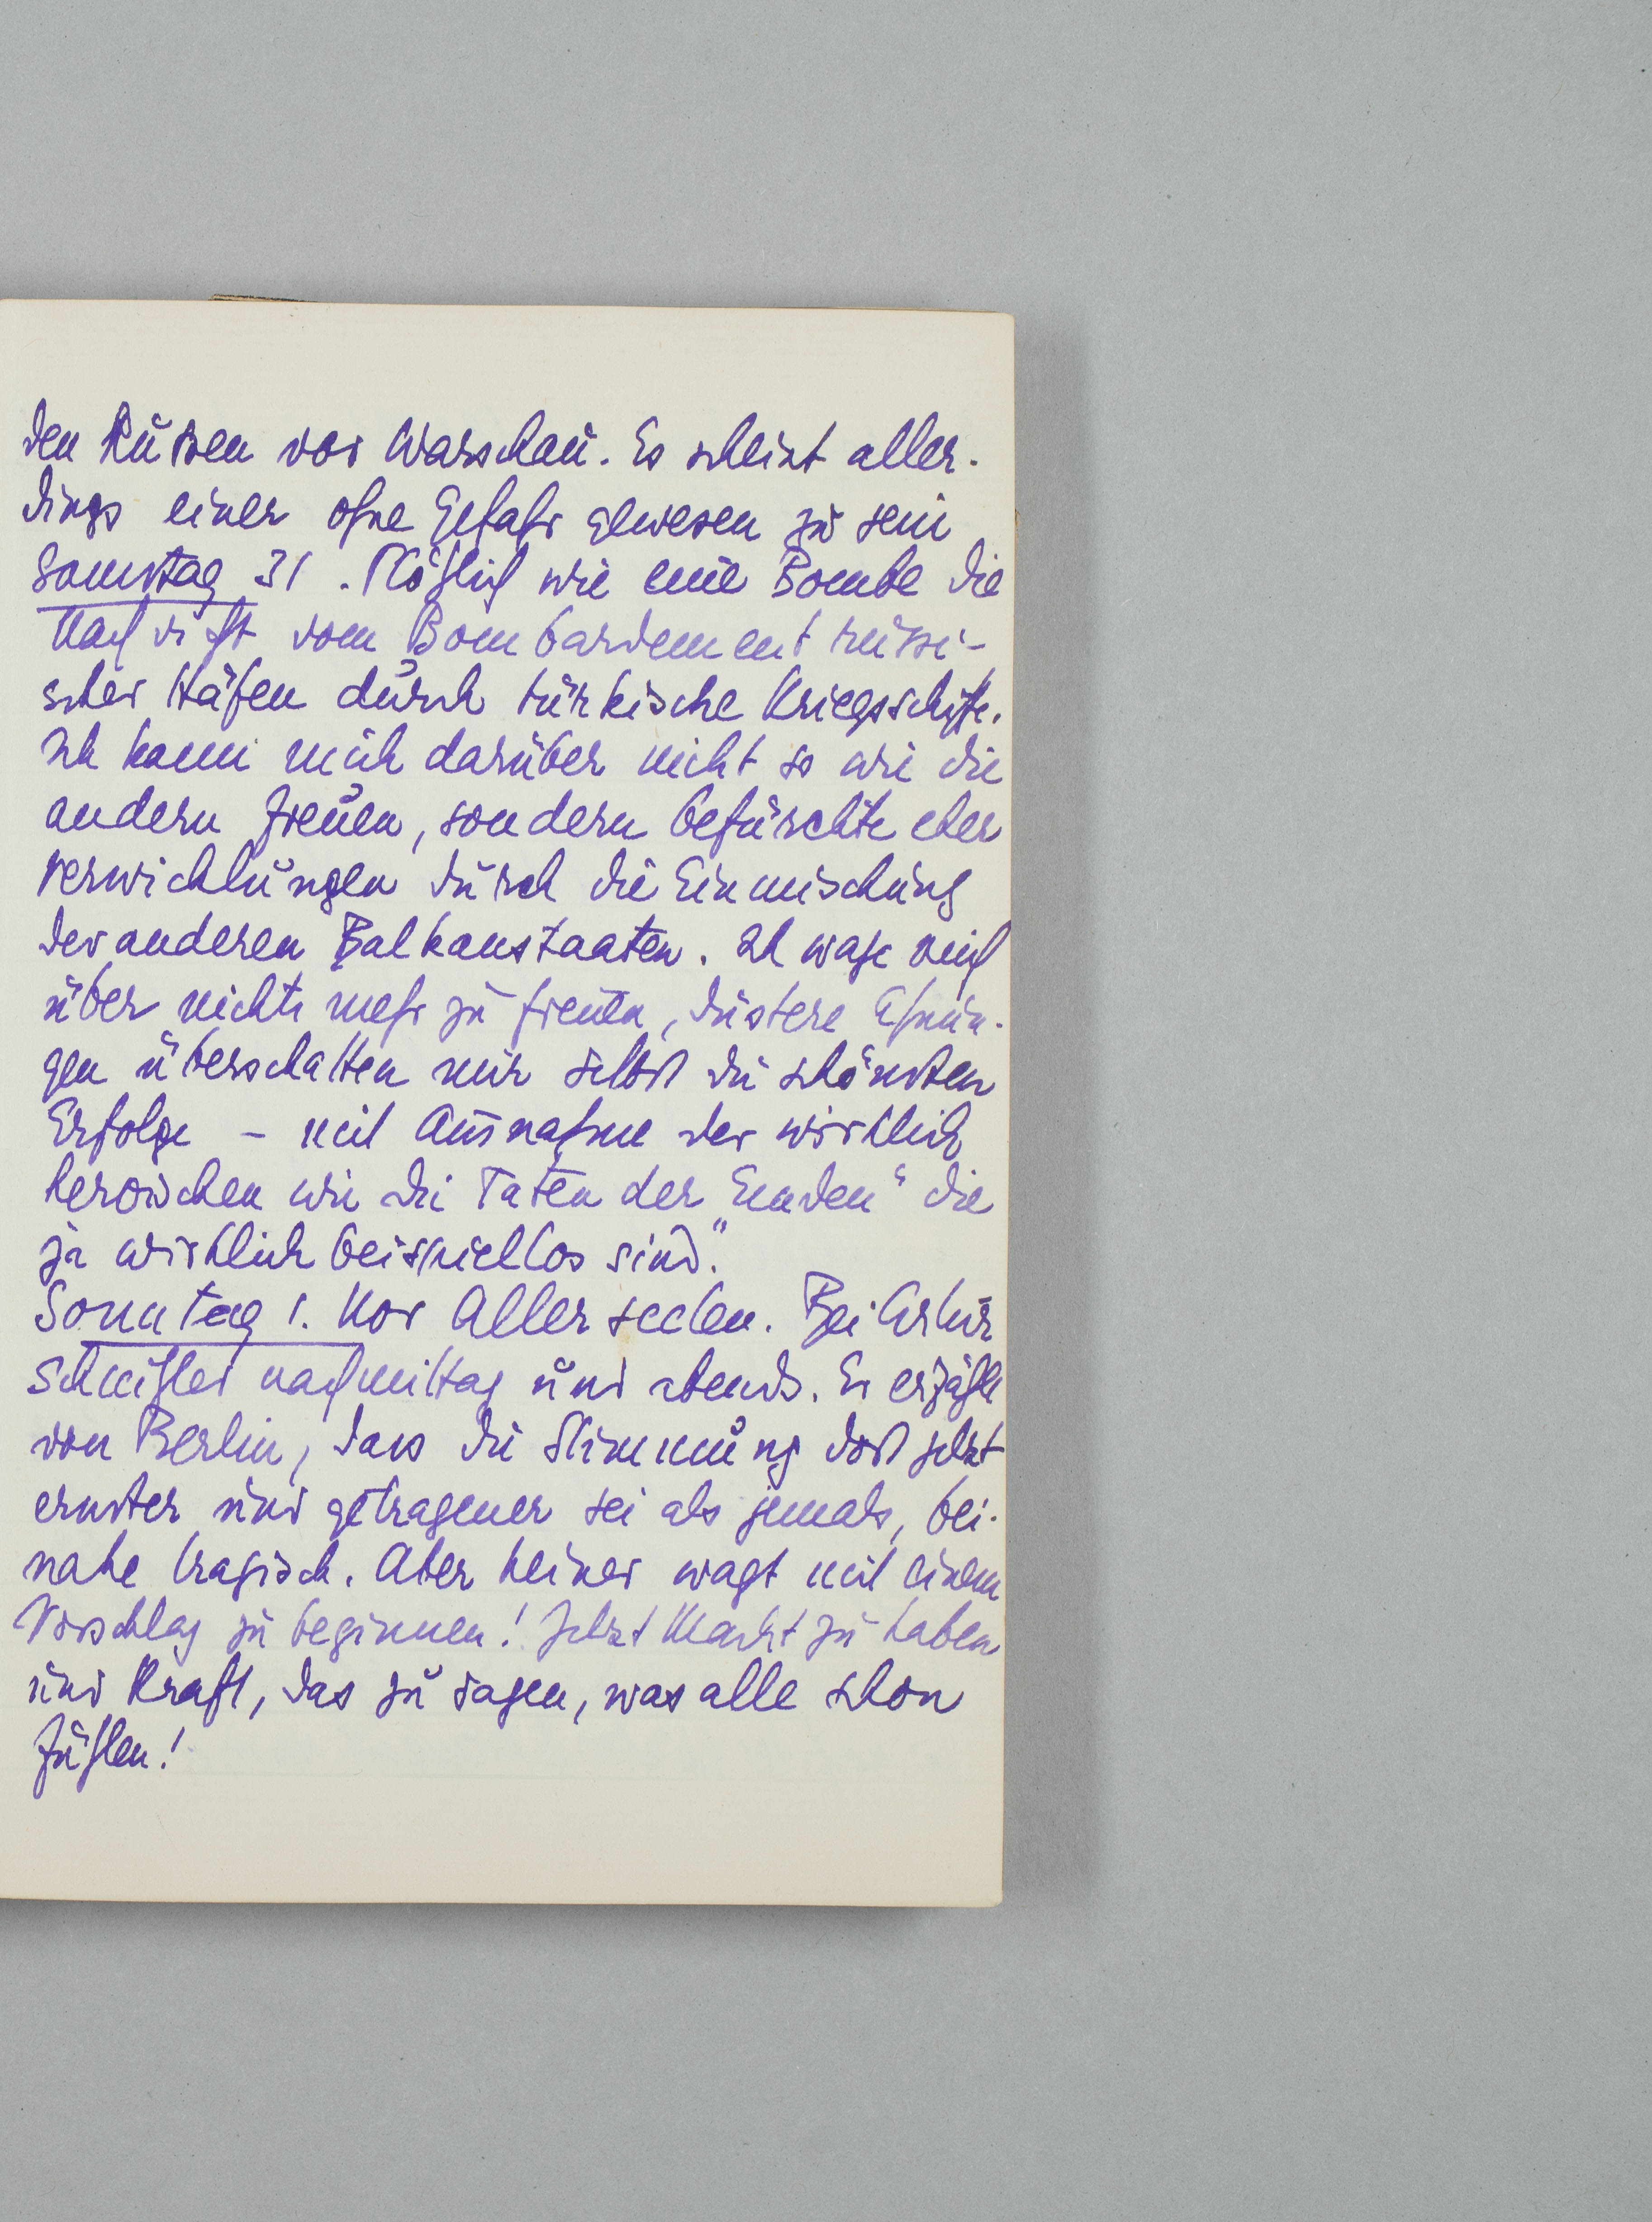 den Russen vor Warschau. Es scheint aller-
dings einer ohne Gefahr gewesen zu sein
Samstag 31. Plötzlich wie eine Bombe die
Nachricht vom Bombardement russi-
scher Häfen durch türkische Kriegsschiffe.
Ich kann mich darüber nicht so wie die
andern freuen, sondern befürchte eher
Verwicklungen durch die Einmischung
der anderen Balkanstaaten. Ich wage mich
über nichts mehr zu freuen, düstere Ahnun-
gen überschatten mir selbst die schönsten
Erfolge – mit Ausnahme der wirklich
heroischen wie die Taten der „Emden“ die
ja wirklich beispiellos sind."
Sonntag 1. Nov Allerseelen. Bei Arthur
Schnitzler nachmittag und abends. Er erzählt
von Berlin, dass die Stimmung dort jetzt
ernster und getragener sei als jemals, bei-
nahe tragisch. Aber keiner wagt mit einem
Vorschlag zu beginnen! Jetzt Macht zu haben
und Kraft, das zu sagen, was alle schon
fühlen!